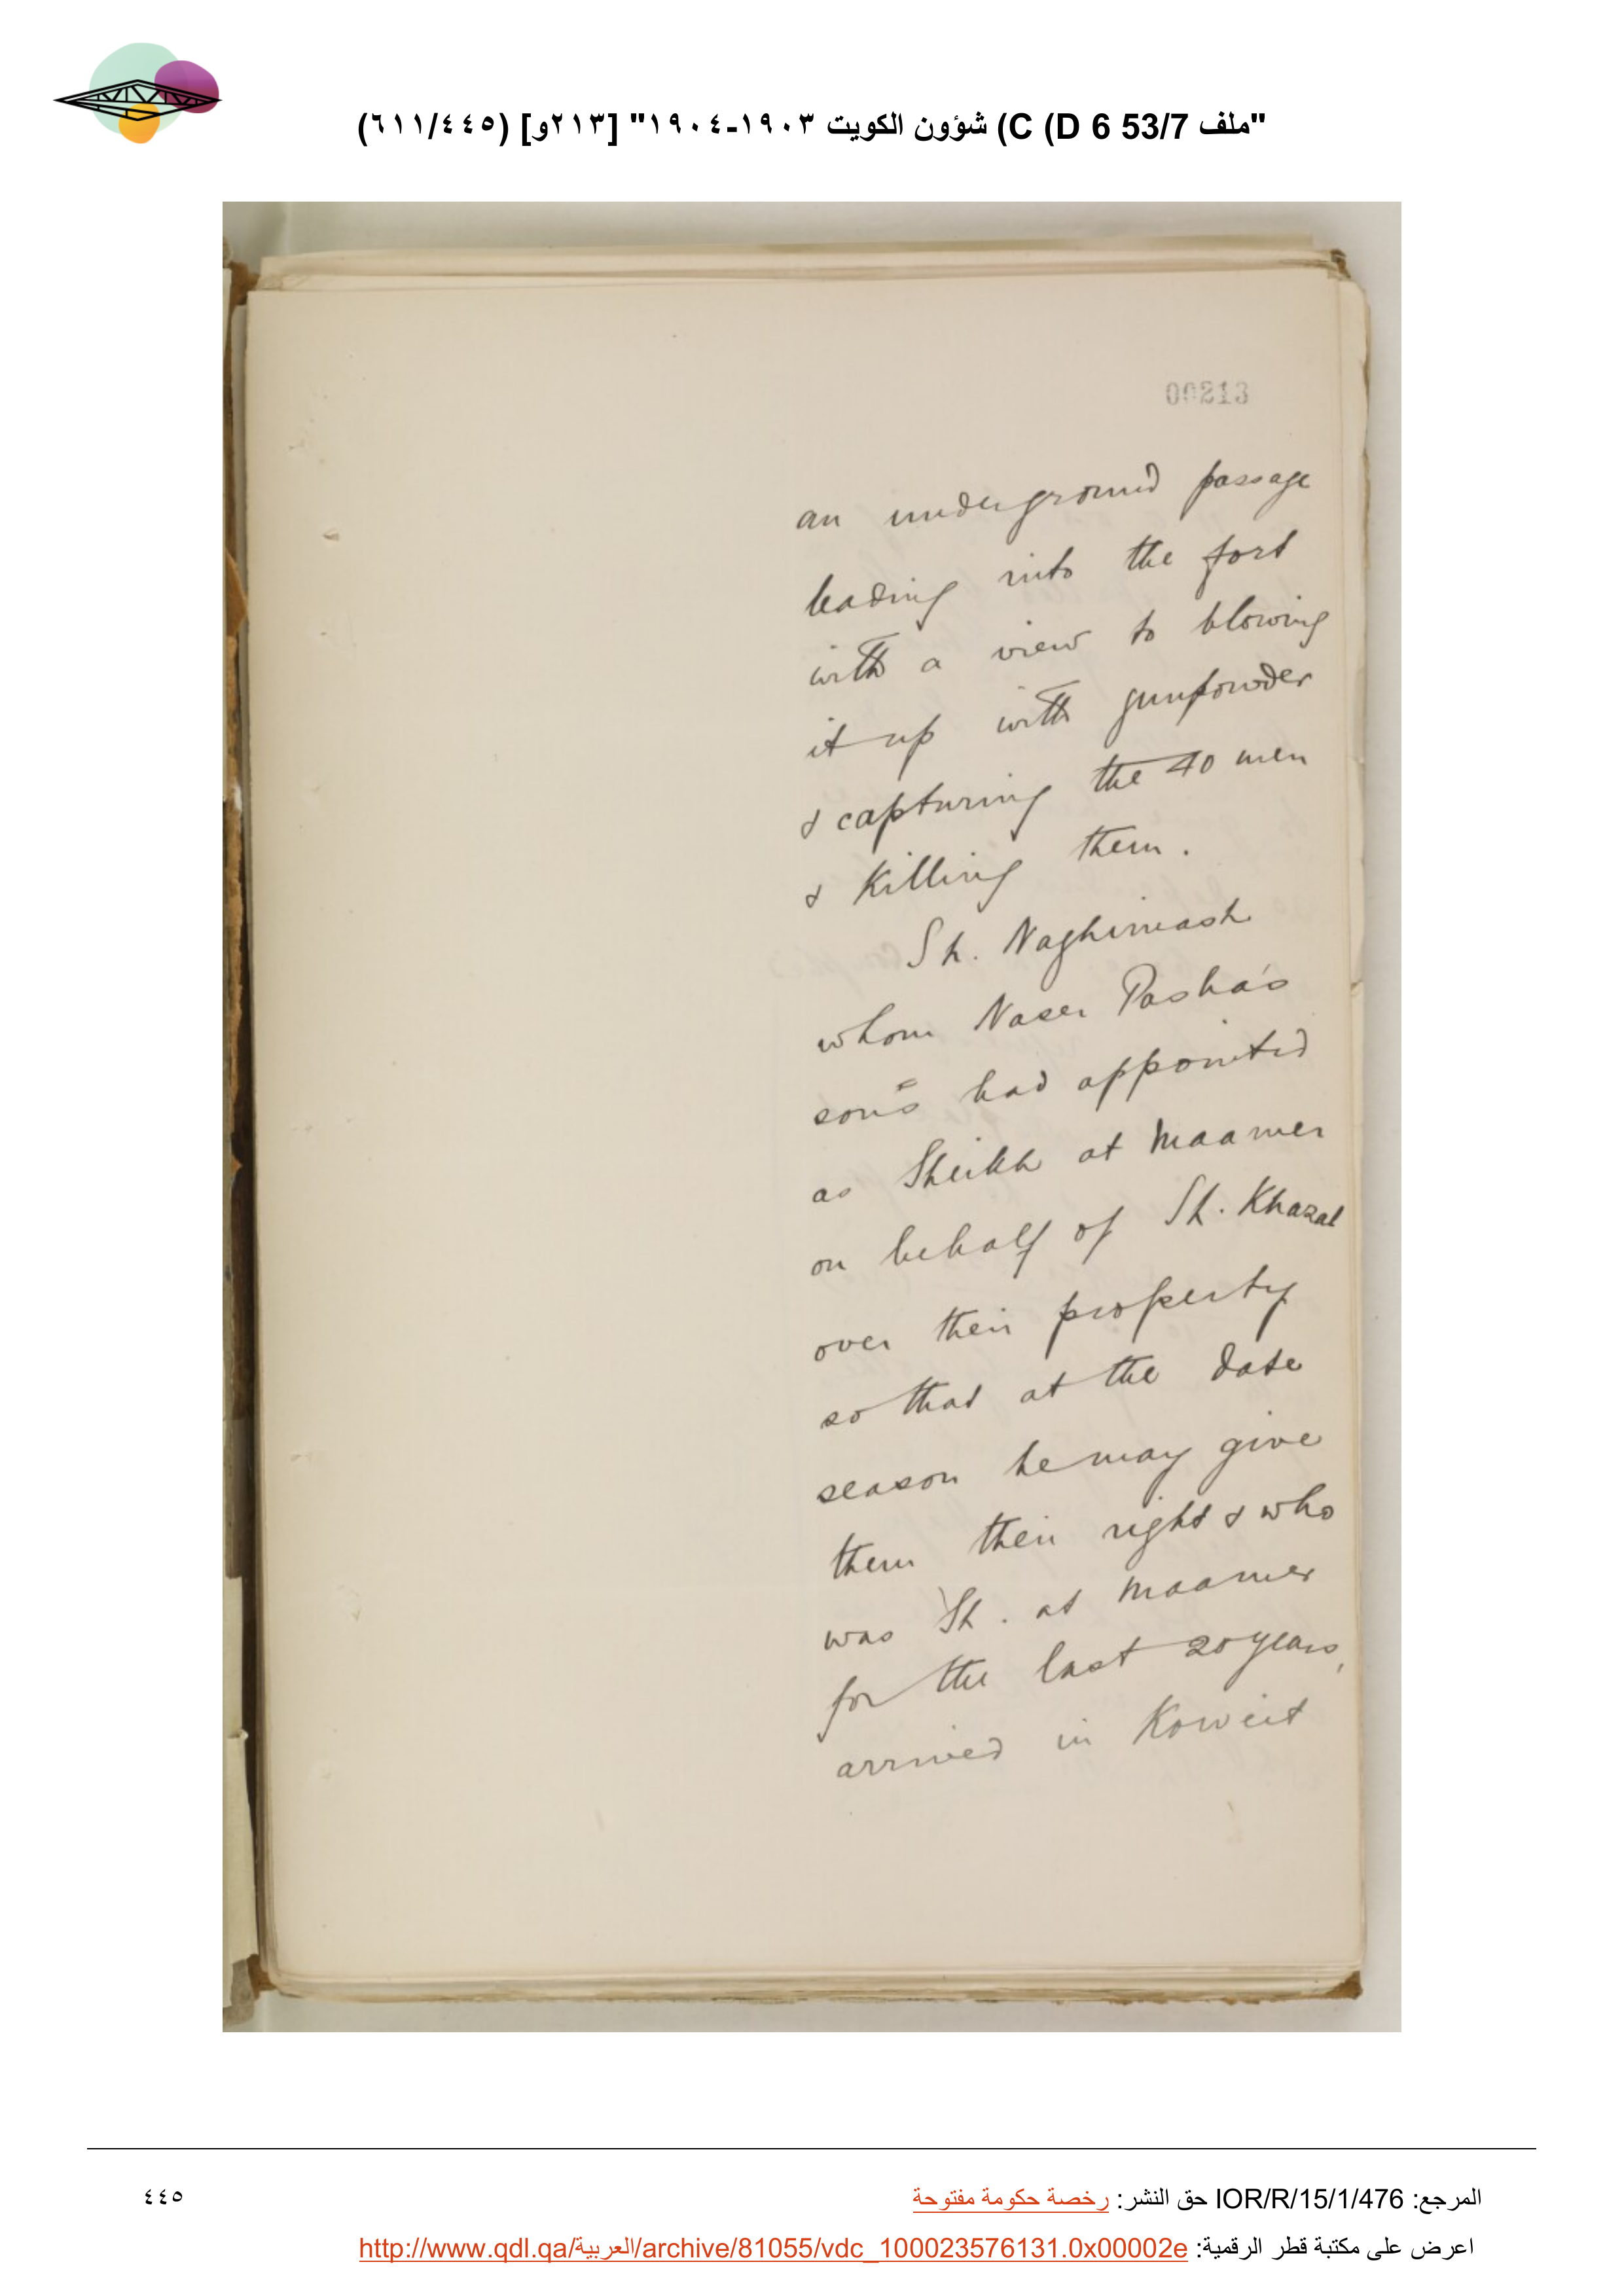 "ملف 53/7 C (D 6) شؤون الكويت ١٩٠٣-١٩٠٤" [٢١٣و] (٦١١/٤٤٥)
00213
an underground passage
leading into the fort
with a view to blowing
it up with gunpowder
& capturing the 40 men
& killing them.
Sh. Naghimash
whom Naser Pasha's
sons had appointed
as Sheikh at Maamer
on behalf of Sh. Khazal
over their property
so that at the date
season he may give
them their right & who
was Sh. at Maamer
for the last 20 years,
arrived in Koweit
المرجع: IOR/R/15/1/476 حق النشر: رخصة حكومة مفتوحة
٤٤٥
اعرض على مكتبة قطر الرقمية: http://www.qdl.qa/العربية/archive/81055/vdc_100023576131.0x00002e